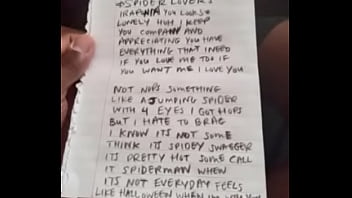 SPIDER LOVERS
YOU LOOK SO
LONELY HUH I KEEP
YOU COMPANY AND
APPRECIATING YOU HAVE
EVERYTHING THAT I NEED
IF YOU LOVE ME TOO IF
YOU WANT ME I LOVE YOU
NOT NOPS SOMETHING
LIKE A JUMPING SPIDER
WITH 4 EYES I GOT HOPS
BUT I HATE TO BRAG
I KNOW ITS NOT SOME
THINK ITS SPIDEY SWAGGER
ITS PRETTY HOT SOME CALL
IT SPIDERMAN WHEN
ITS NOT EVERYDAY FEELS
LIKE HALLOWEEN WHEN IM WITH YOU